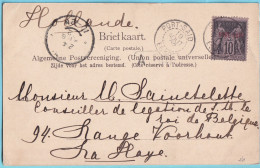 Hollande.
Briefkaart.
(Carte postale)
Algemeene Postvereeniging. (Union postale universelle)
Zijde voor het adres bestemd. (Côté réservé à l'adresse.)
PORT SAID
10
Monsieur M. Sainctelette
Conseiller de légation de S. M. le
roi de Belgique
94. Lange Voorhout
La Haye.